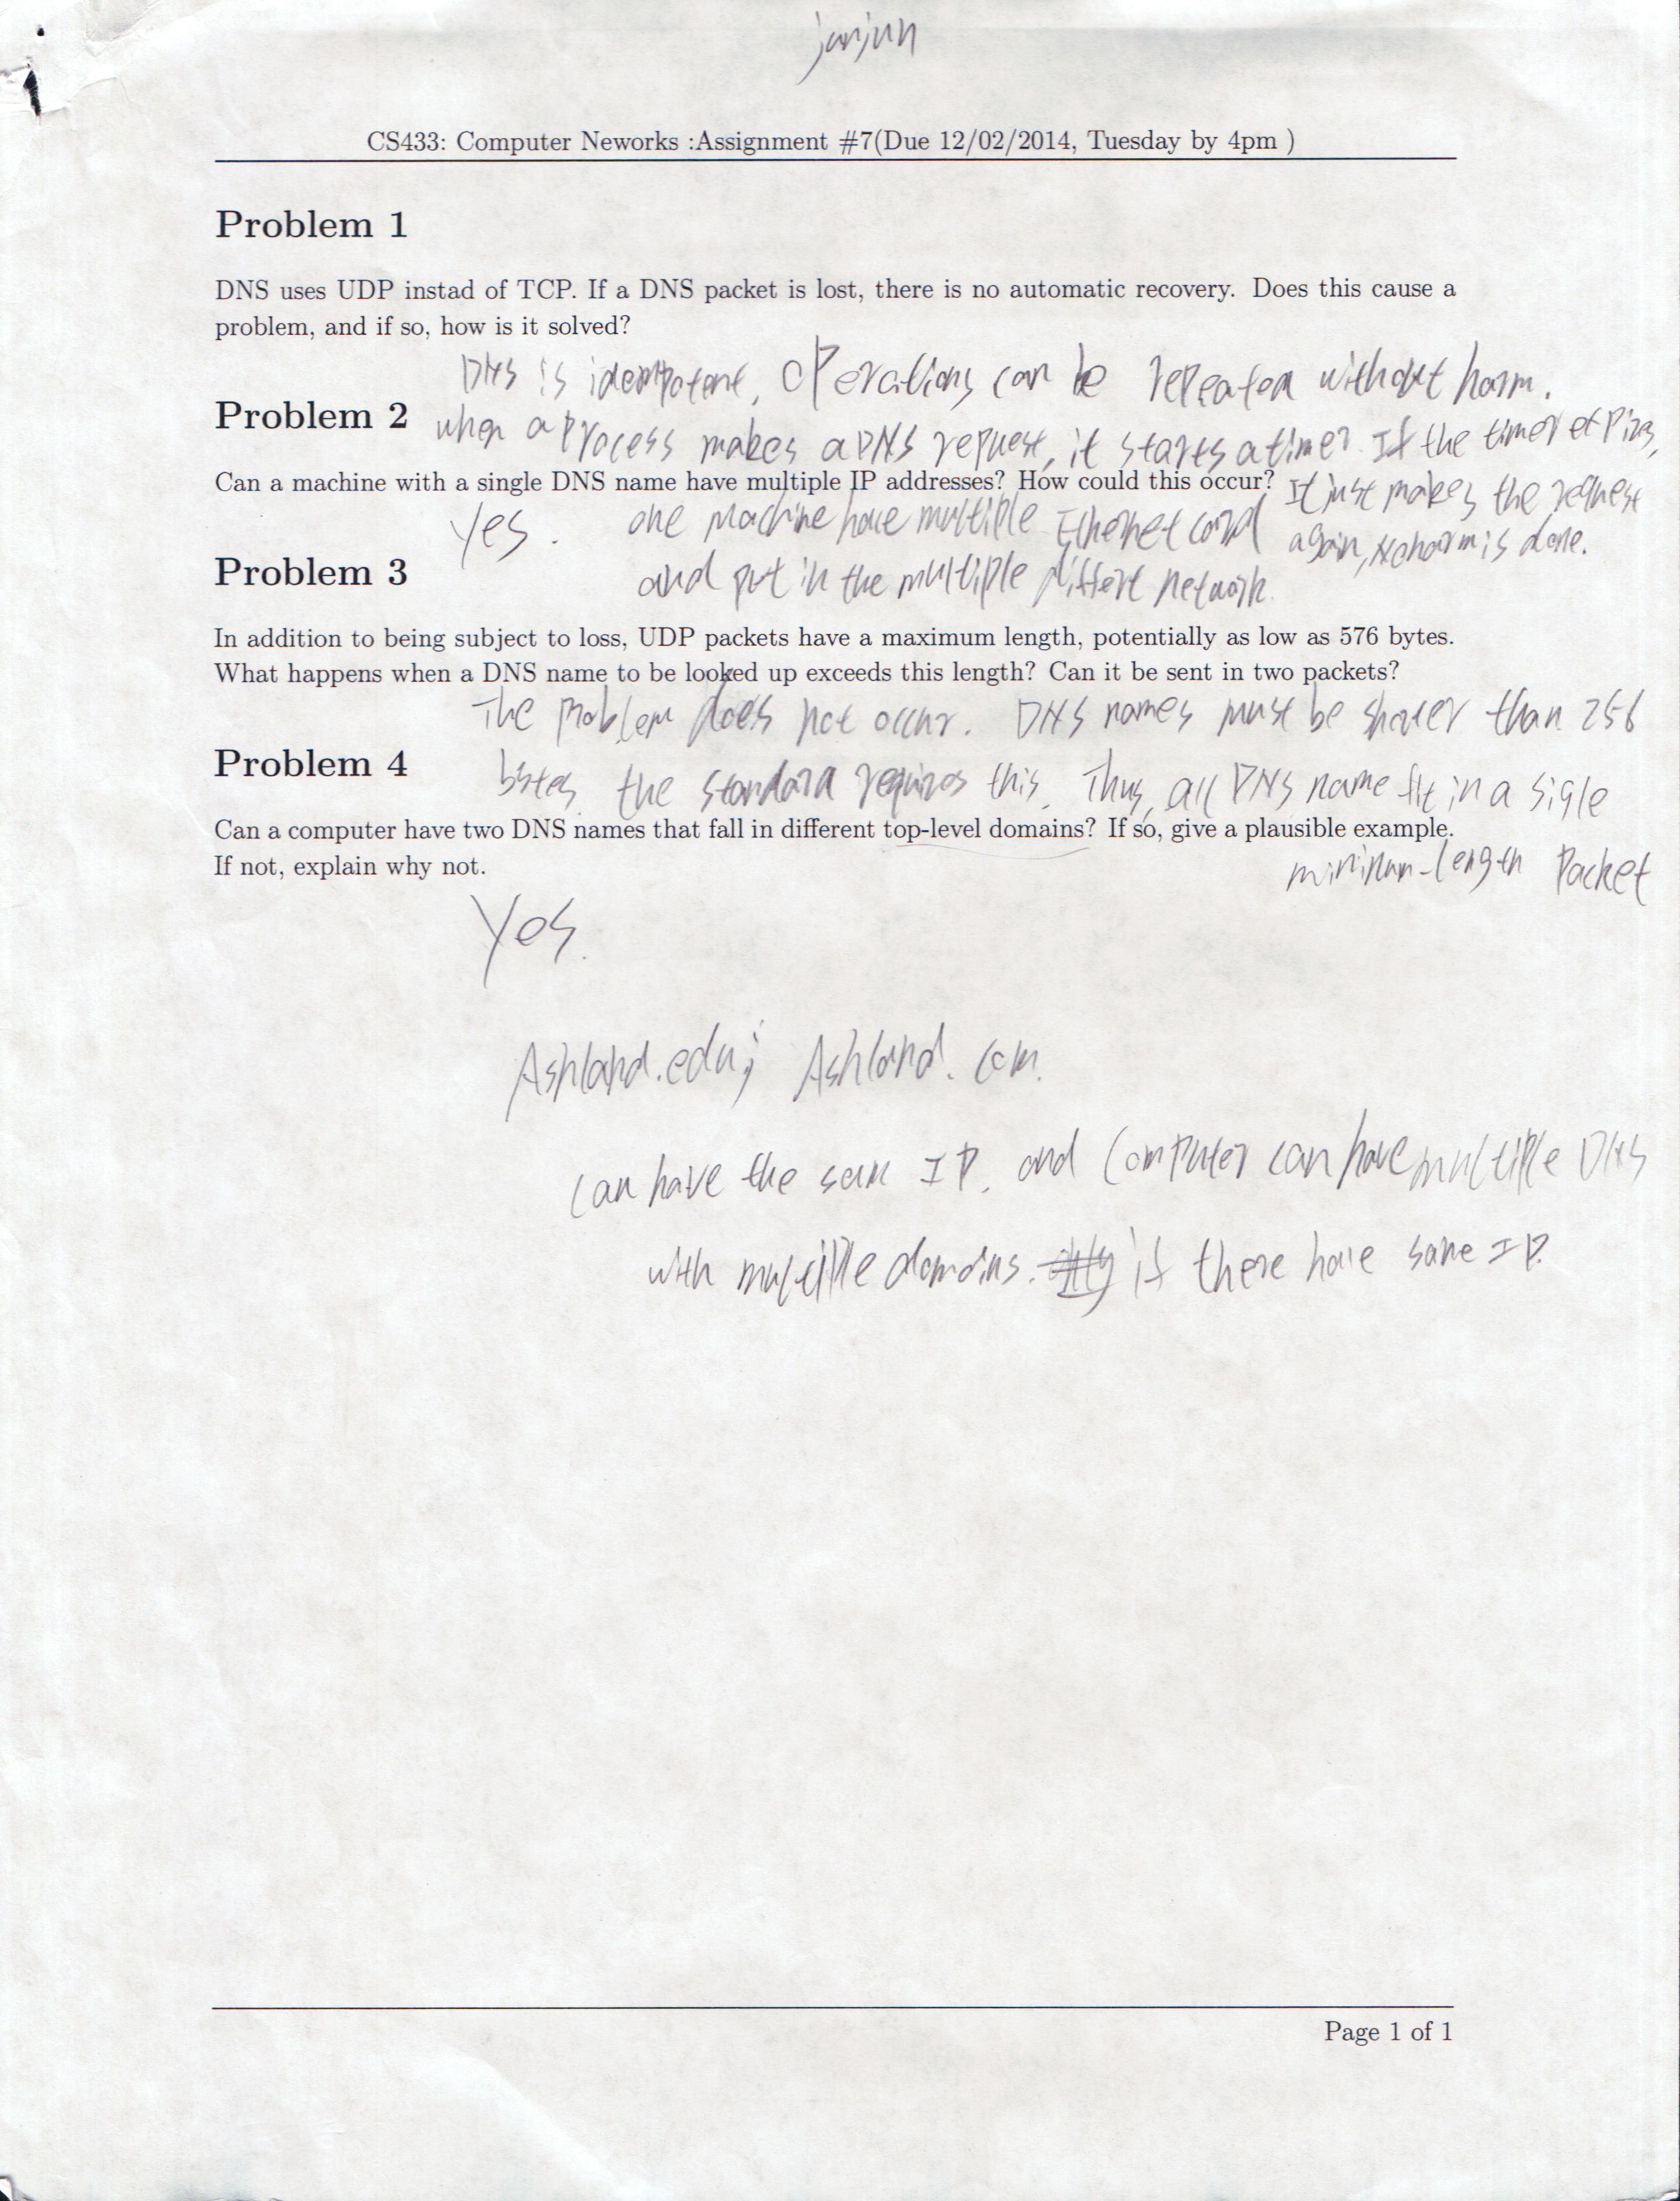 junjun
CS433: Computer Neworks :Assignment #7(Due 12/02/2014, Tuesday by 4pm )
Problem 1
DNS uses UDP instad of TCP. If a DNS packet is lost, there is no automatic recovery. Does this cause a
problem, and if so, how is it solved?
DNS is idempotent, operations can be repeated without harm.
when a process makes a DNS request, it starts a timer. If the timer expires,
It just makes the request
again, No harm is done.
Problem 2
Can a machine with a single DNS name have multiple IP addresses? How could this occur?
Yes. one machine have multiple Ethernet card
and put in the multiple differt network.
Problem 3
In addition to being subject to loss, UDP packets have a maximum length, potentially as low as 576 bytes.
What happens when a DNS name to be looked up exceeds this length? Can it be sent in two packets?
The problem does not occur. DNS names must be shorter than 256
bytes. the standard requires this. Thus, all DNS name fit in a sigle
minimum-length Packet
Problem 4
Can a computer have two DNS names that fall in different top-level domains? If so, give a plausible example.
If not, explain why not.
Yes.
Ashland.edu; Ashland.com.
can have the same IP. and Computer can have multiple DNS
with multiple domains. if there have same IP.
Page 1 of 1